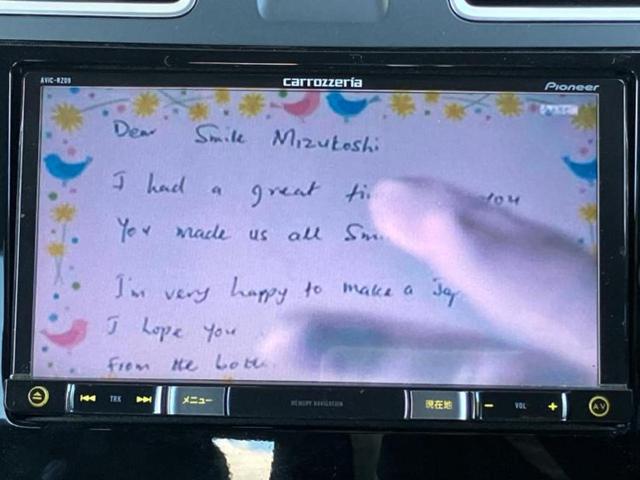 AVIC-RZ09
carrozzeria
Pioneer
Dear Smile Mizukoshi
I had a great ti you
You made us all Smi
I'm very happy to make a Jap
I hope you
From the bott
TRK
メニュー
MEMORY NAVIGATION
現在地
VOL
AV